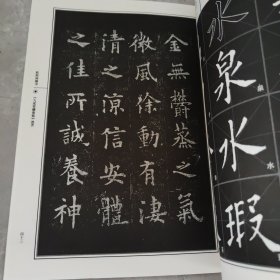 金無鬱蒸之氣
微風徐動有淒
清之涼信安體
之佳所誠養神
水泉水瑕